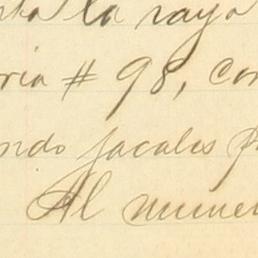 la raya
ria # 98, con
ndo jacales p
Al numer